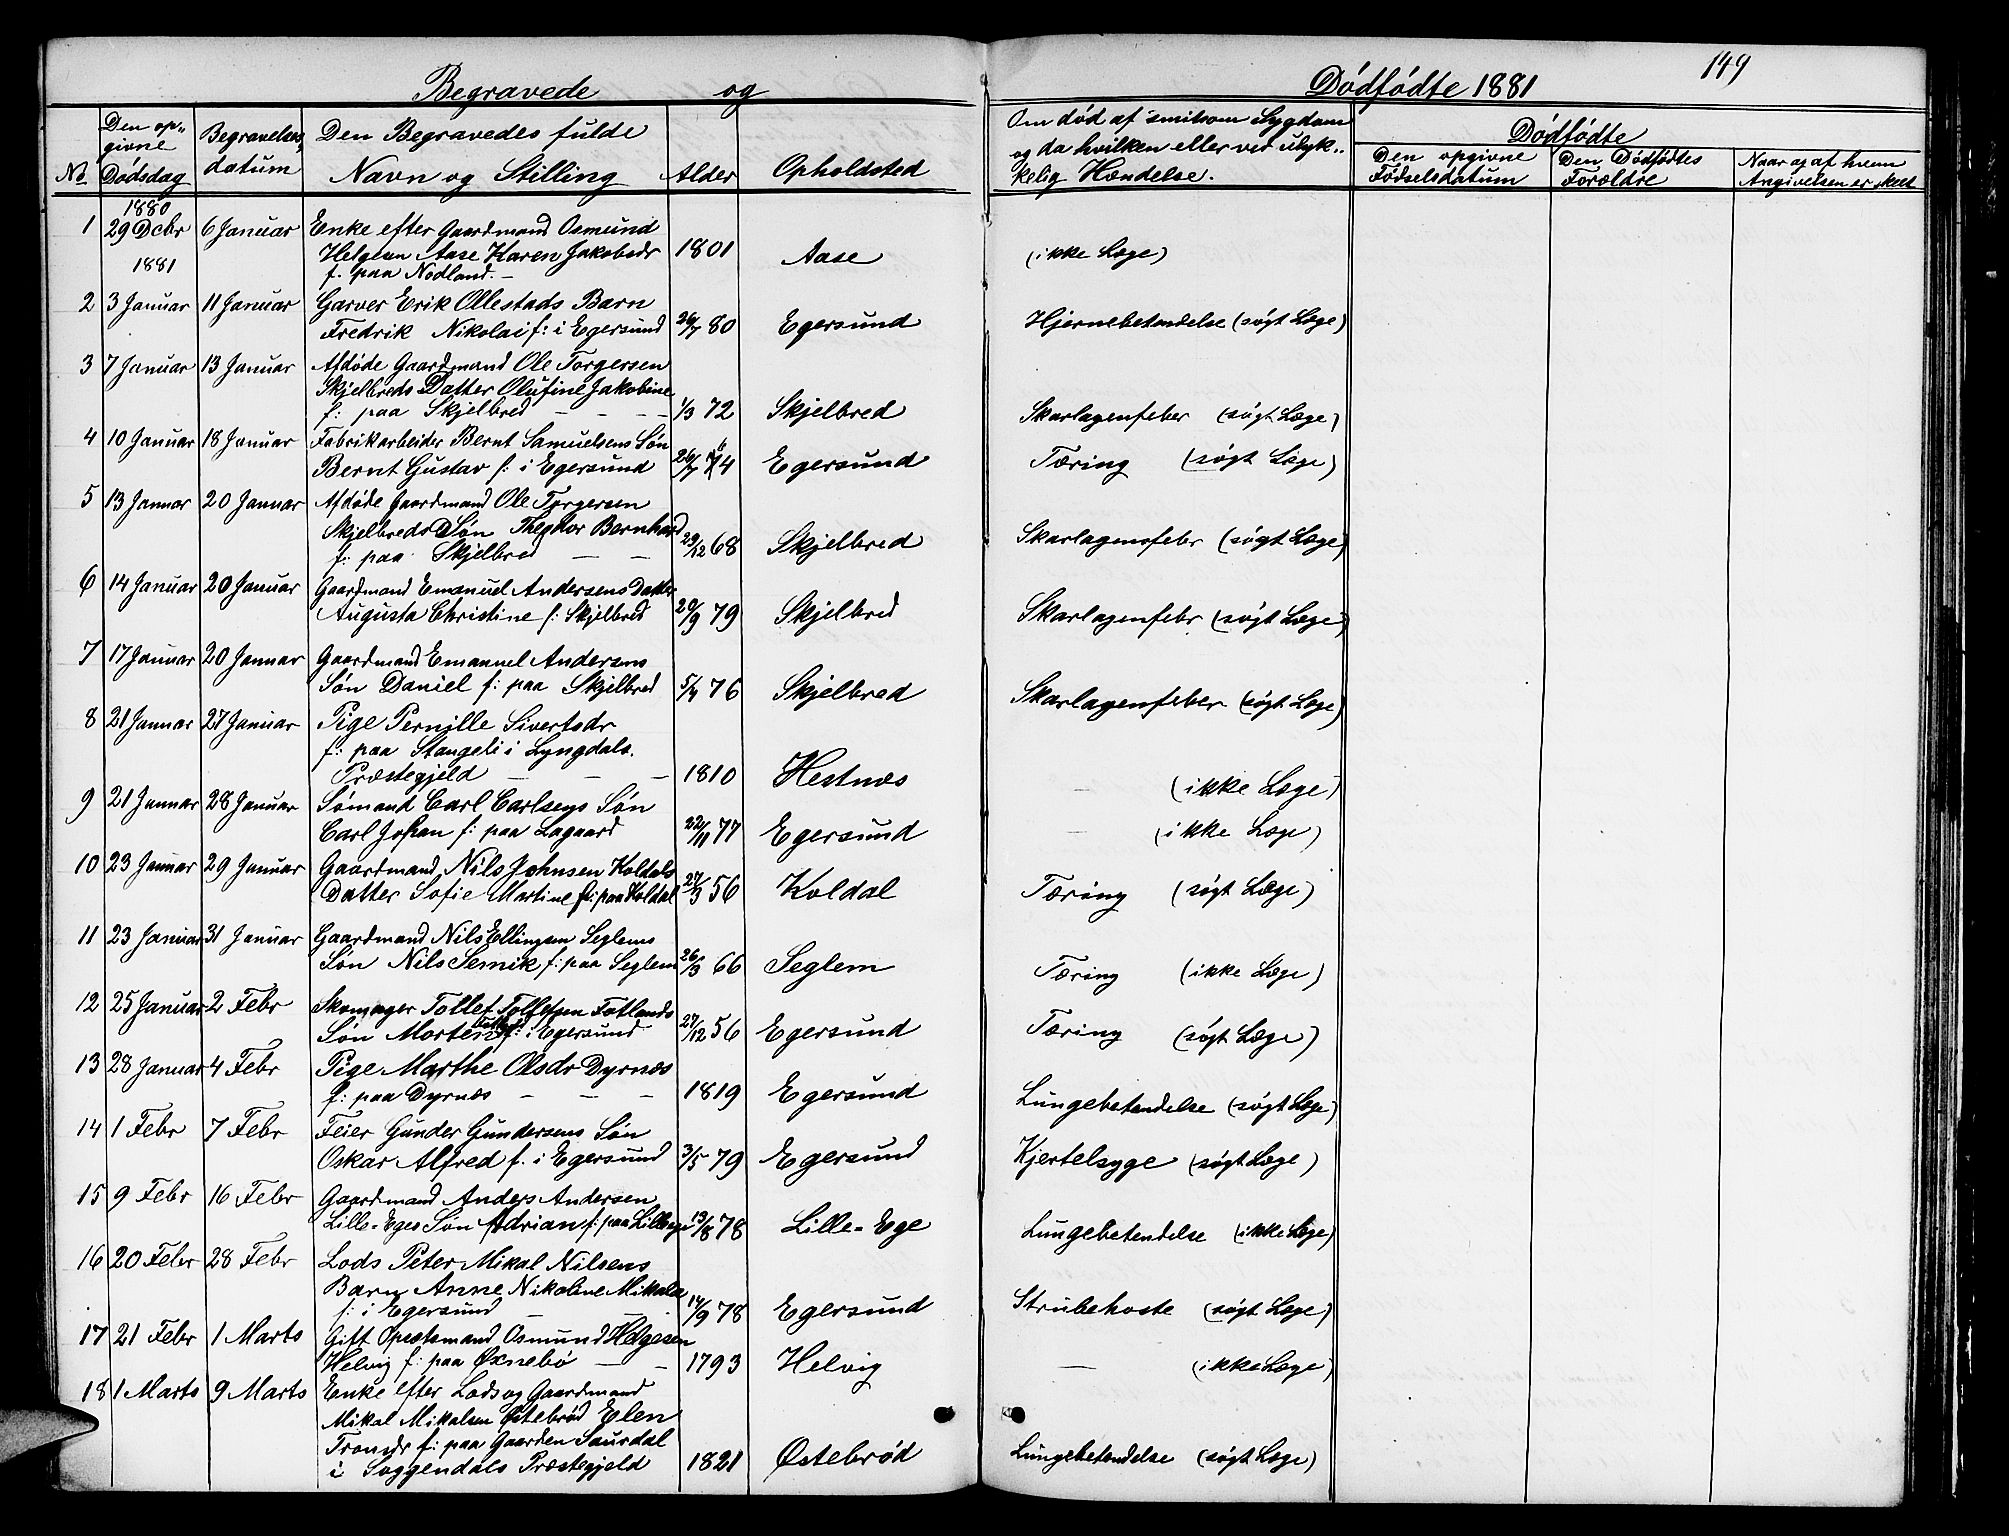 149
Begravede og Dödfödte 1881
No
Den op„
givne
Dödsdag
Begravelses
datum
Den Begravedes fulde
Navn og Stilling
Alder
Opholdsted
Om död af smitsom Sygdom
og da hvilken eller ved ulyk„
kelig Hændelse.
Dödfödte
Den opgivne
Födselsdatum
Den Dödfödtes
Forældre
Naar og af hvem
Angivelsen er skeet
1880
1 29 Dcbr 6 Januar Enke efter Gaardmand Osmund
1881 Helgesen Aase Karen Jakobsdr 1801 Aase (ikke Læge)
f. paa Nodland. –
2 3 Januar 11 Januar Garver Erik Ollestads Barn
Fredrik Nikolai f: i Egersund 26/7 80 Egersund Hjernebetendelse (søgt Læge)
3 7 Januar 13 Januar Afdöde Gaardmand Ole Torgersen
Skjelbreds Datter Olufine Jakobine
f: paa Skjelbred – – – 1/3 72 Skjelbred Skarlagenfeber (søgt Læge)
4 10 Januar 18 Januar Fabrikarbeider Bernt Samuelsens Sön
Bernt Gustav f: i Egersund 26/7 4 Egersund Tæring (søgt Læge)
5 13 Januar 20 Januar Afdöde Gaardmand Ole Torgersen
Skjelbreds Sön Theodor Bernhard
f: paa Skjelbred – – 29/12 68 Skjelbred Skarlagensfebr (søgt Læge)
6 14 Januar 20 Januar Gaardmand Emanuel Andersens Datter
Augusta Christine f: Skjelbred 20/9 79 Skjelbred Skarlagenfebr (søgt Læge)
7 17 Januar 20 Januar Gaardmand Emanuel Andersens
Sön Daniel f: paa Skjelbred 5/4 76 Skjelbred Skarlagenfeber (søgt Læge)
8 21 Januar 27 Januar Pige Pernille Sivertsdr
f: paa Stangeli i Lyngdals.
Præstegjeld – – – 1810 Hestnæs – (ikke Læge)
9 21 Januar 28 Januar Sömand Carl Carlsens Sön
Carl Johan f: paa Lagaard 22/11 77 Egersund – (ikke Læge)
10 23 Januar 29 Januar Gaardmand Nils Johnsen Koldals
Datter Sofie Martine f: paa Koldal 27/3 56 Koldal Tæring (søgt Læge)
11 23 Januar 31 Januar Gaardmand Nils Ellingsen Seglems
Sön Nils Sernik f: paa Seglem 26/3 66 Seglem Tæring (ikke Læge)
12 25 Januar 2 Febr Skomager Tollef Tollefsen Fotlands
Sön Morten f: i Egersund 27/12 56 Egersund Tæring (søgt Læge)
13 28 Januar 4 Febr Pige Marthe Olsdr Dyrnæs
f: paa Dyrnæs – – – 1819 Egersund Lungebetendelse (søgt Læge)
14 1 Febr 7 Febr Feier Gunder Gundersens Sön
Oskar Alfred f. i Egersund 3/5 79 Egersund Kjertelsyge (søgt Læge)
15 9 Febr 16 Febr Gaardmand Anders Andersen
Lille-Eges Sön Adrian f: paa Lilleege 13/8 78 Lille-Ege Lungebetendelse (ikke Læge)
16 20 Febr 28 Febr Lods Peter Mikal Nilsens
Barn Anne Nikoline Mikalea
f: i Egersund – 14/9 78 Egersund Strubehoste (søgt Læge)
17 21 Febr 1 Marts Gift Opsatsmand Osmund Helgesen
Helvig f: paa Øxnebö – – 1793 Helvig – (ikke Læge)
18 1 Marts 9 Marts Enke efter Lods og Gaardmand
Mikal Mikalsen Østebröd Elen
Tronsdr f: paa Gaarden Saurdal
i Soggendals Præstegjeld 1821 Østebröd Lungebetendelse (søgt Læge)